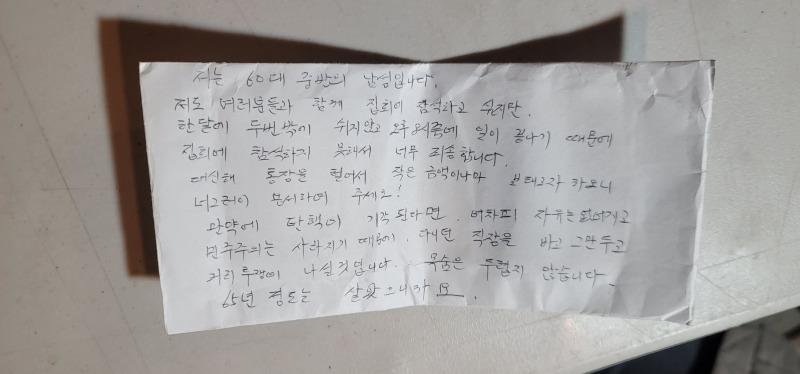 저는 60대 중반의 남성입니다.
저도 여러분들과 함께 집회에 참석하고 싶지만.
한달에 두번밖에 쉬지않고 오후 8시쯤에 일이 끝나기 때문에
집회에 참석하지 못해서 너무 죄송합니다.
대신해 통장을 털어서 작은 금액이나마 보태고자 하오니
너그러이 용서하여 주세요!
만약에 탄핵이 기각 된다면. 어차피 자유는 없어지고
민주주의는 사라지기 때문에. 다니던 직장을 바로 그만두고
거리 투쟁에 나설것 입니다. 목숨은 두렵지 않습니다.
65년 정도는 살았으니까요.